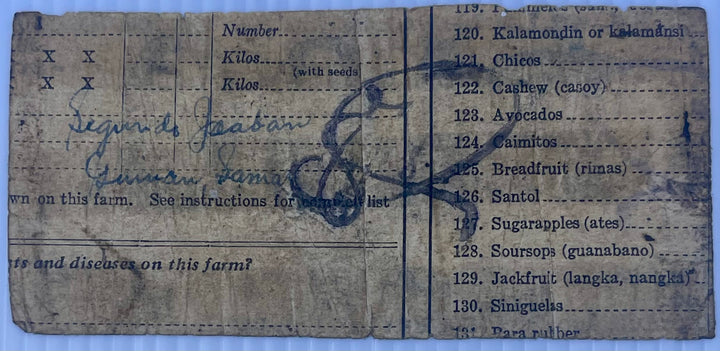 Number
X X Kilos
(with seeds
X X Kilos
Segundo
Guiuan, Samar
wn on this farm. See instructions for complete list
ts and diseases on this farm?
119.
120. Kalamondin or kalamansi
121. Chicos
122. Cashew (casoy)
123. Avocados
124. Caimitos
125. Breadfruit (rimas)
126. Santol
127. Sugarapples (ates)
128. Soursops (guanabano)
129. Jackfruit (langka, nangka)
130. Siniguelas
131. Para rubber